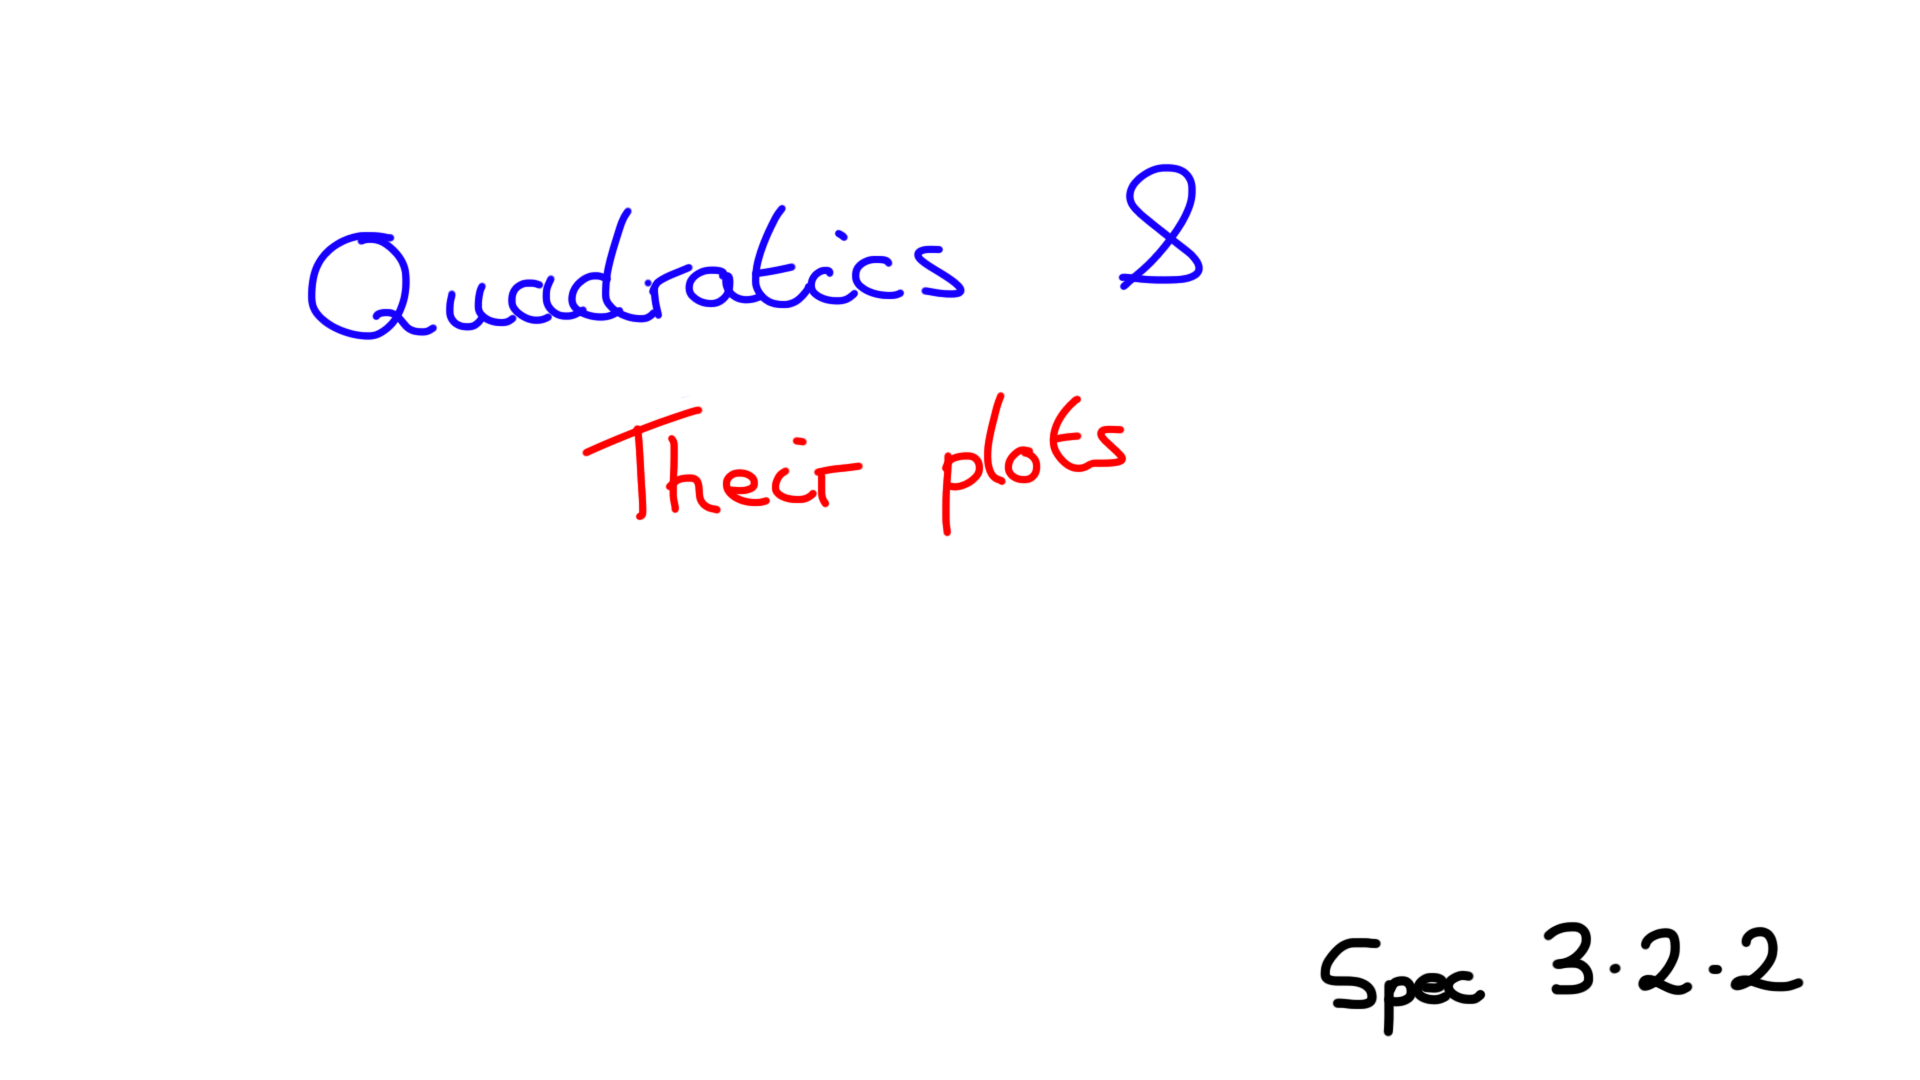 Quadratics &
Their plots
Spec 3.2.2